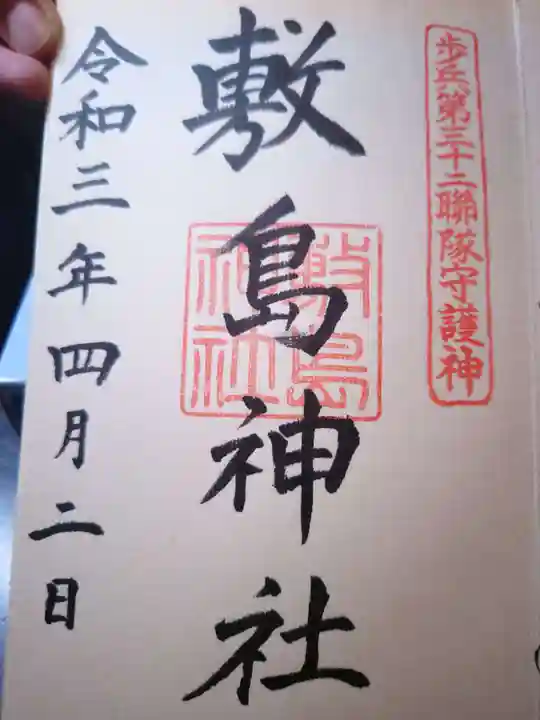 歩兵第三十二聯隊守護神
敷島神社
敷島神社
令和三年四月二日